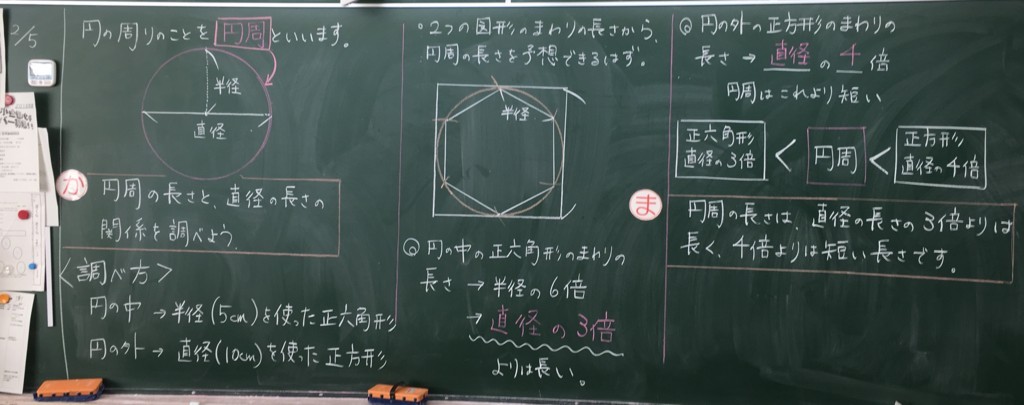 2/5
円の周りのことを円周といいます。
半径
直径
か
円周の長さと、直径の長さの
関係を調べよう。
〈調べ方〉
円の中→半径(5cm)を使った正六角形
円の外→直径(10cm)を使った正方形
。2つの図形のまわりの長さから、
円周の長さを予想できるはず。
半径
Q 円の中の正六角形のまわりの
長さ→半径の6倍
→直径の3倍
よりは長い。
Q 円の外の正方形のまわりの
長さ→直径の4倍
円周はこれより短い
正六角形
直径の3倍
<
円周
<
正方形
直径の4倍
ま
円周の長さは、直径の長さの3倍よりは
長く、4倍よりは短い長さです。